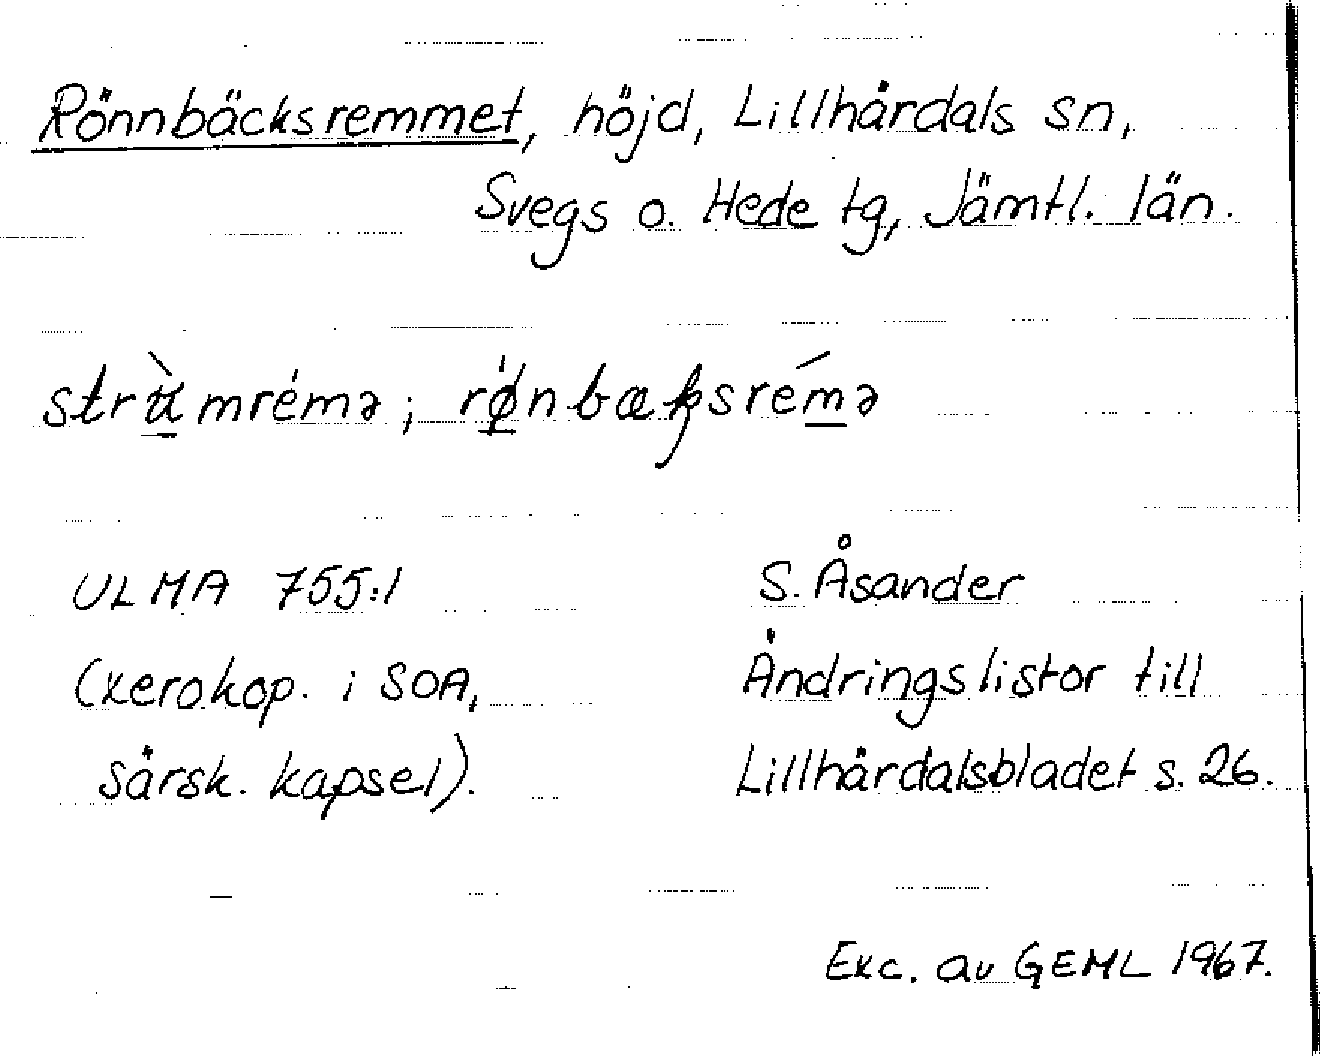 Rönnbäcksremmet, höjd, Lillhårdals sn,
Svegs o. Hede tg, Jämtl. län.
strʉ̀mrémə; rǿnbæƙsrémə
ULMA 755:1
(xerokop. i SOA,
särsk. kapsel).
S. Åsander
Ändringslistor till
Lillhårdalsbladet s. 26.
Exc. av GEML 1967.